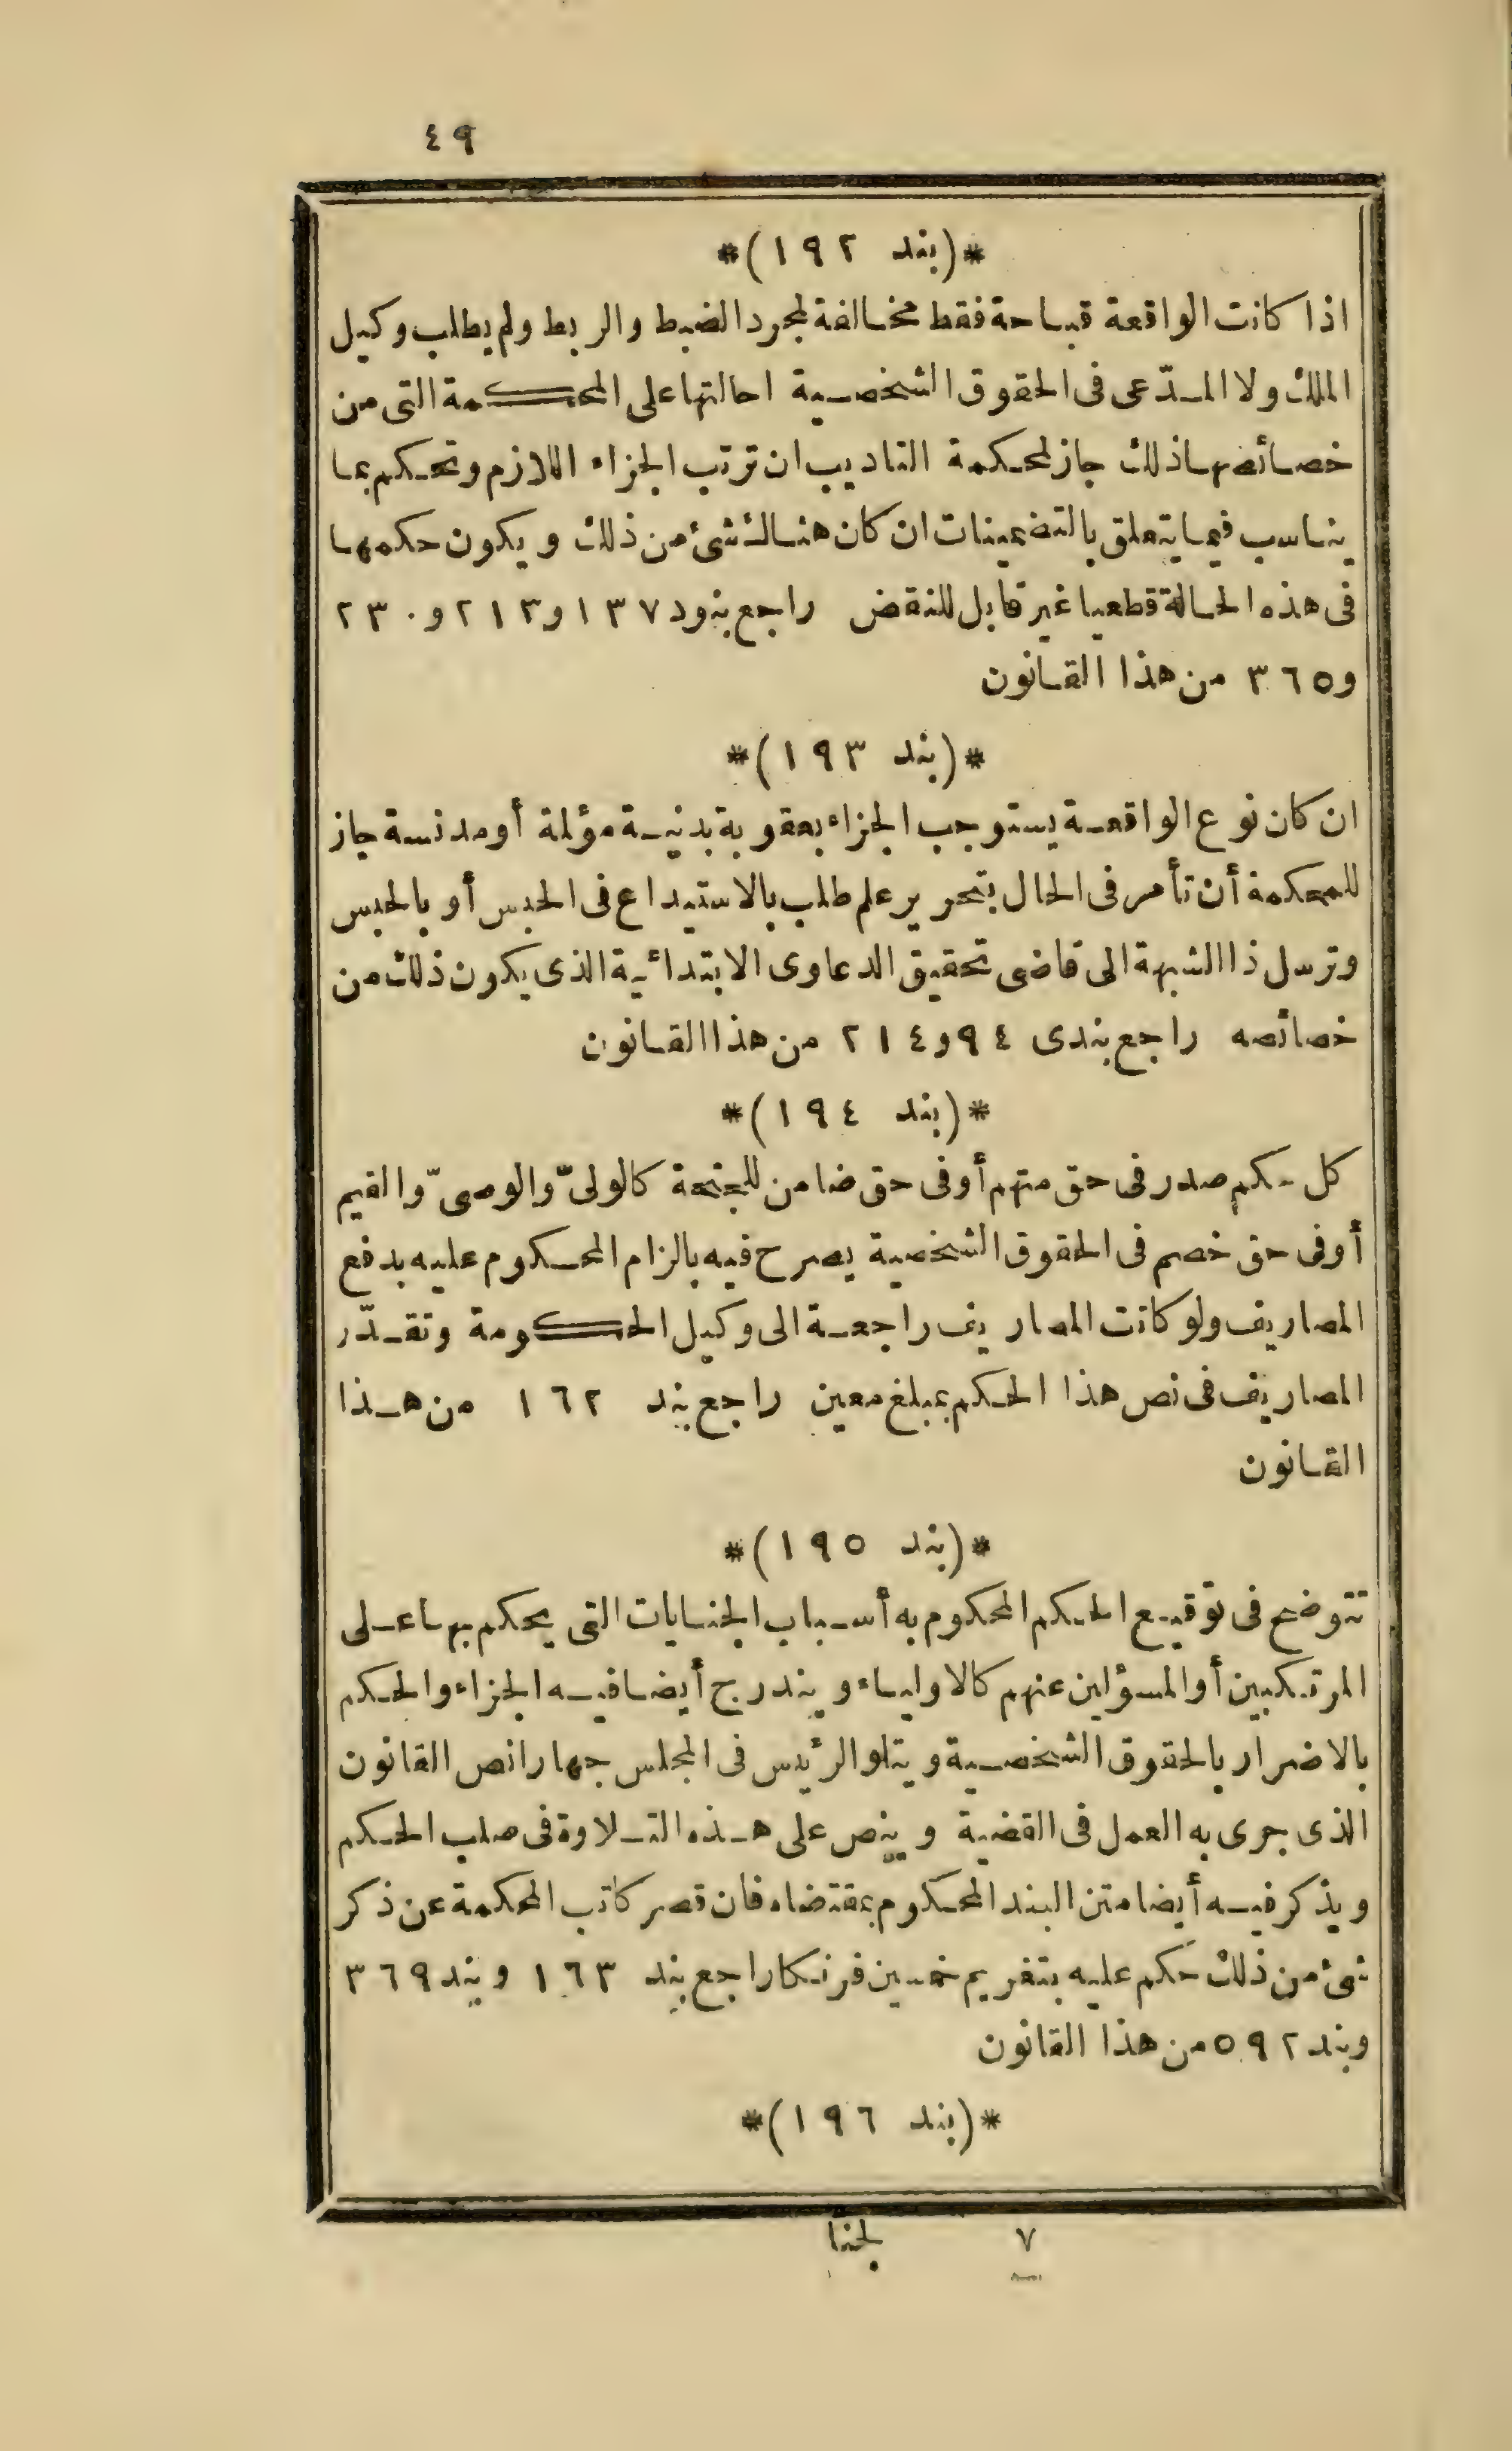 ٤٩
*(بند ١٩٢)*
اذا كانت الواقعة قباحة فقط مخالفة لمجرد الضبط والربط ولم يطلب وكيل
الملك ولا المدّعى فى الحقوق الشخصية احالتها على المحكمة التى من
خصائصها ذلك جاز لمحكمة التاديب ان ترتب الجزاء اللازم وتحكم بما
يناسب فيما يتعلق بالتضمينات ان كان هناك شئ من ذلك ويكون حكمها
فى هذه الحالة قطعيا غير قابل للنقض راجع بنود ١٣٧ و٢١٣ و٢٣٠
و٣٦٥ من هذا القانون
*(بند ١٩٣)*
ان كان نوع الواقعة يستوجب الجزاء بعقوبة بدنية مؤلمة أو مدنسة جاز
للمحكمة أن تأمر فى الحال بتحرير علم طلب بالاستيداع فى الحبس أو بالحبس
وترسل ذا الشبهة الى قاضى تحقيق الدعاوى الابتدائية الذى يكون ذلك من
خصائصه راجع بندى ٩٤ و٢١٤ من هذا القانون
*(بند ١٩٤)*
كل حكم صدر فى حق متهم أو فى حق ضامن للجنحة كالولىّ والوصىّ والقيم
أو فى حق خصم فى الحقوق الشخصية يصرح فيه بالزام المحكوم عليه بدفع
المصاريف ولو كانت المصاريف راجعة الى وكيل الحكومة وتقدّر
المصاريف فى نص هذا الحكم بمبلغ معين راجع بند ١٦٢ من هذا
القانون
*(بند ١٩٥)*
تتوضح فى توقيع الحكم المحكوم به أسباب الجنايات التى يحكم بها على
المرتكبين أو المسؤلين عنهم كالاولياء ويندرج أيضا فيه الجزاء والحكم
بالاضرار بالحقوق الشخصية ويتلو الرئيس فى المجلس جهارا نص القانون
الذى جرى به العمل فى القضية وينص على هذه التلاوة فى صلب الحكم
ويذكر فيه أيضا متن البند المحكوم بمقتضاه فان قصر كاتب المحكمة عن ذكر
شئ من ذلك حكم عليه بتغريم خمسين فرنكا راجع بند ١٦٣ وبند ٣٦٩
وبند ٥٩٢ من هذا القانون
*(بند ١٩٦)*
٧ لجنا